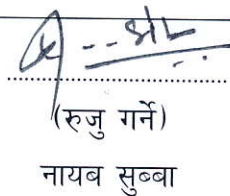 (रुजु गर्ने)
नायब सुब्बा